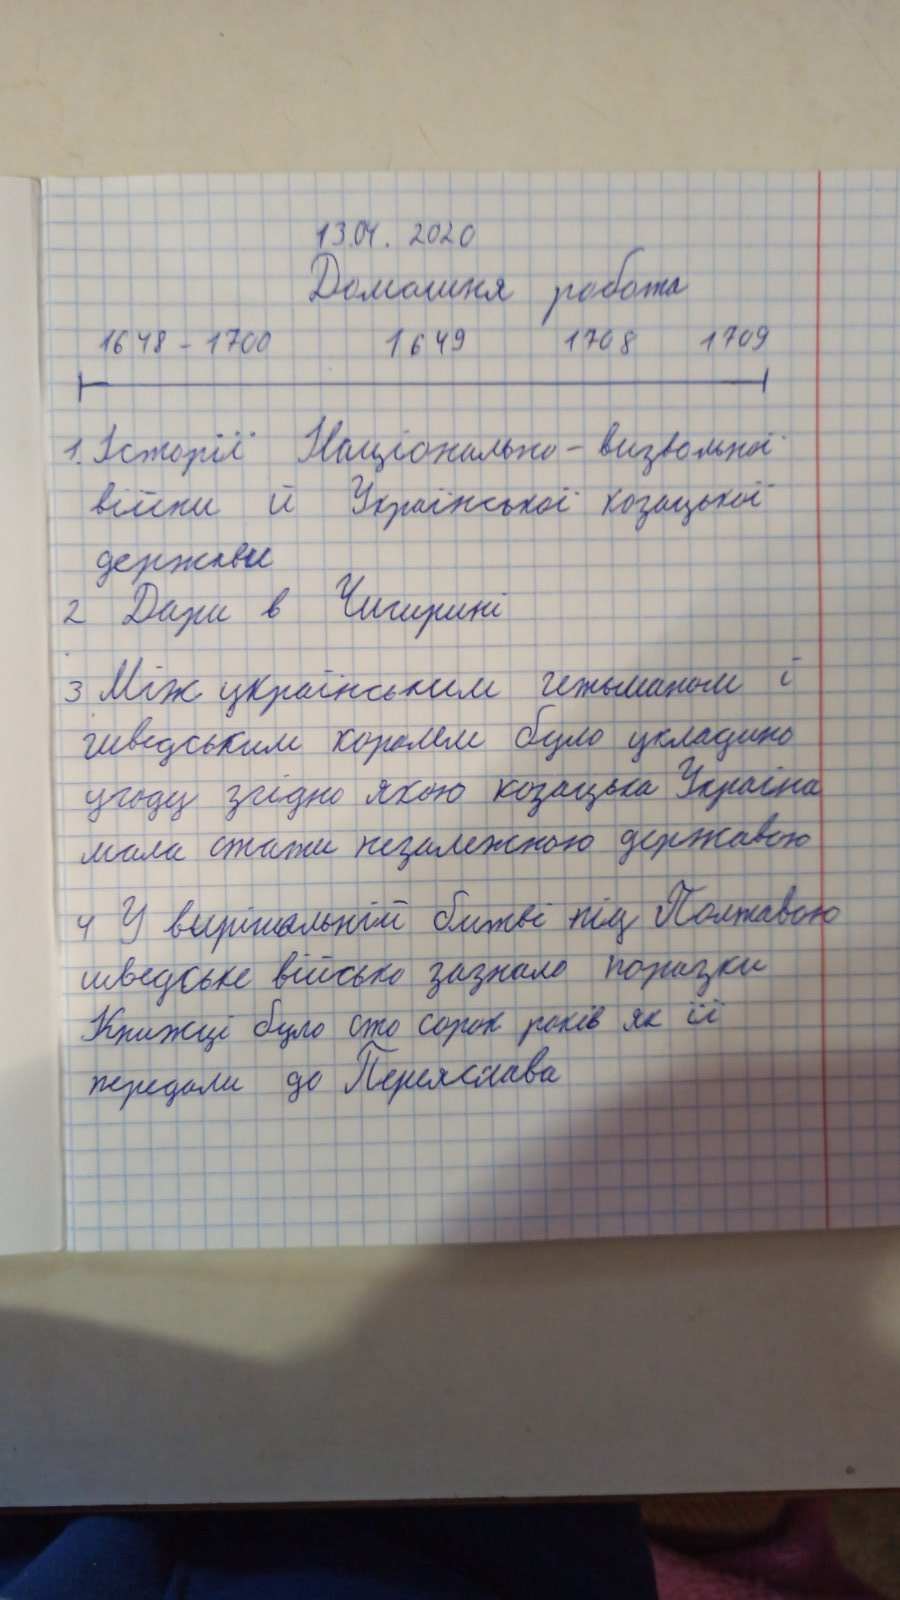 13.04. 2020
Домашня робота
1648 - 1700 1649 1708 1709
1. Історії Національно - визвольної
війни й Української козацької
держави
2 Дари в Чигирині
3 Між українським гетьманом і
шведським королем було укладино
угоду згідно якою козацька Україна
мала стати незалежною державою
4 У вирішальній битві під Полтавою
шведське військо зазнало поразки
Книжці було сто сорок років як її
передали до Переяслава